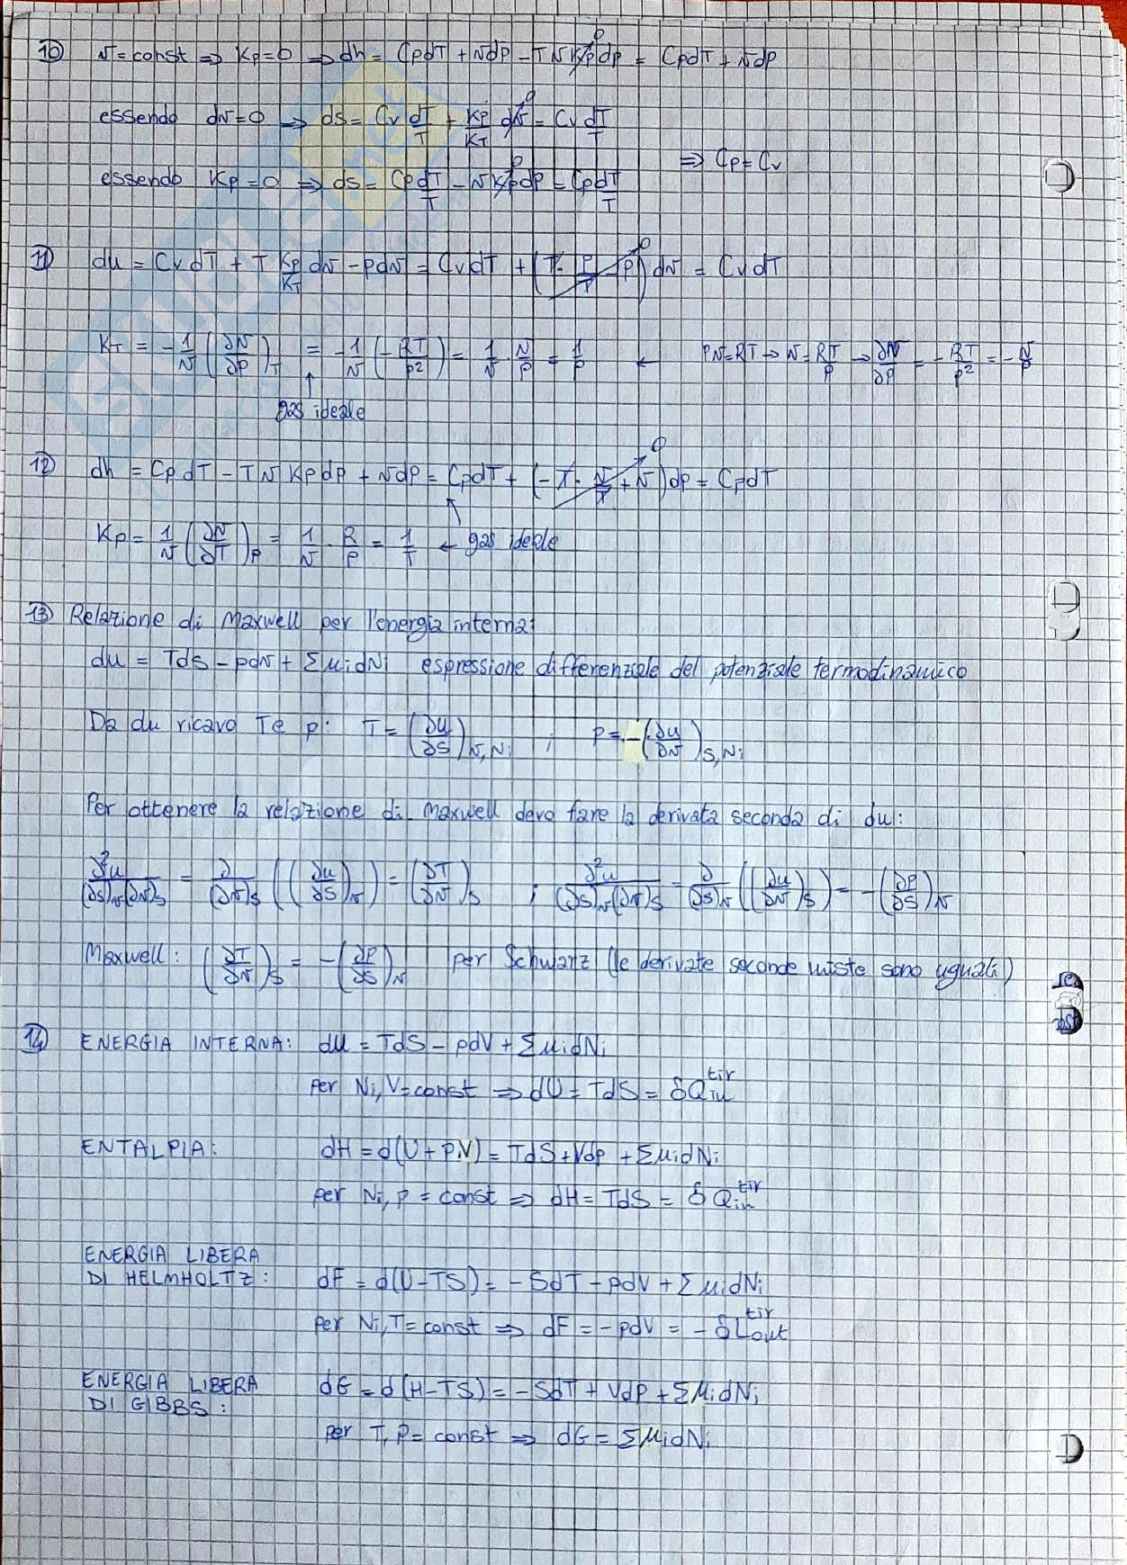 10) v = const ⇒ Kp = 0 ⇒ dh = CpdT + vdp - TvKpdp = CpdT + vdp
0
essendo dv = 0 ⇒ ds = Cv dT/T + Kp/KT dv = Cv dT/T
0
⇒ Cp = Cv
essendo Kp = 0 ⇒ ds = Cp dT/T - vKpdp = Cp dT/T
0
11) du = CvdT + T Kp/KT dv - pdv = CvdT + (T · p/T - p) dv = CvdT
0
KT = -1/v (∂v/∂p)T = -1/v (-RT/p²) = 1/v v/p = 1/p ← pv = RT → v = RT/p → ∂v/∂p = -RT/p² = -v/p
gas ideale
12) dh = CpdT - TvKpdp + vdp = CpdT + (-T · v/T + v) dp = CpdT
0
Kp = 1/v (∂v/∂T)p = 1/v · R/p = 1/T ← gas ideale
13) Relazione di Maxwell per l'energia interna:
du = Tds - pdv + ΣμidNi espressione differenziale del potenziale termodinamico
Da du ricavo T e p: T = (∂u/∂s)v,Ni ; p = -(∂u/∂v)s,Ni
Per ottenere la relazione di Maxwell devo fare la derivata seconda di du:
∂²u/(∂s)v(∂v)s = ∂/(∂v)s ((∂u/∂s)v) = (∂T/∂v)s ; ∂²u/(∂s)v(∂v)s = ∂/(∂s)v ((∂u/∂v)s) = -(∂p/∂s)v
Maxwell: (∂T/∂v)s = -(∂p/∂s)v per Schwarz (le derivate seconde miste sono uguali)
14) ENERGIA INTERNA: dU = TdS - pdV + ΣμidNi
per Ni, V = const ⇒ dU = TdS = δQin^tir
ENTALPIA: dH = d(U + PV) = TdS + Vdp + ΣμidNi
per Ni, p = const ⇒ dH = TdS = δQin^tir
ENERGIA LIBERA
DI HELMHOLTZ: dF = d(U - TS) = -SdT - pdV + ΣμidNi
per Ni, T = const ⇒ dF = -pdV = -δLout^tir
ENERGIA LIBERA
DI GIBBS: dG = d(H - TS) = -SdT + Vdp + ΣμidNi
per T, P = const ⇒ dG = ΣμidNi